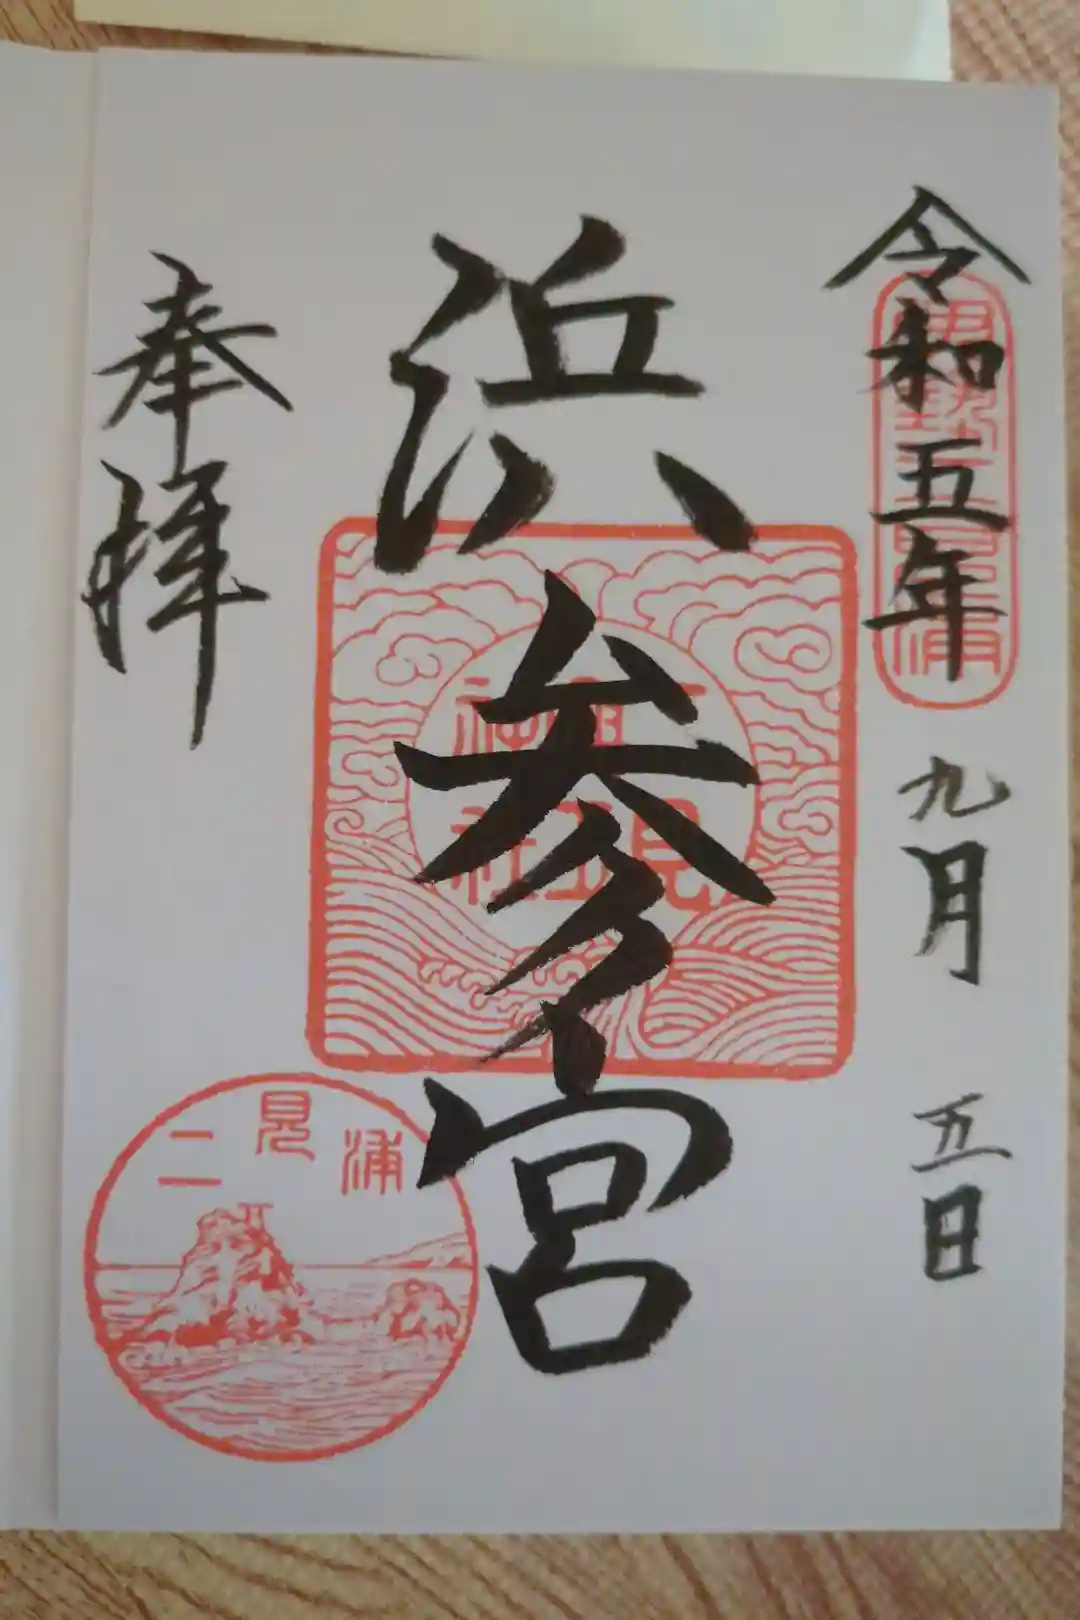 令和五年 九月 五日
伊勢二見浦
浜参宮
二見興玉神社
奉拝
二見浦